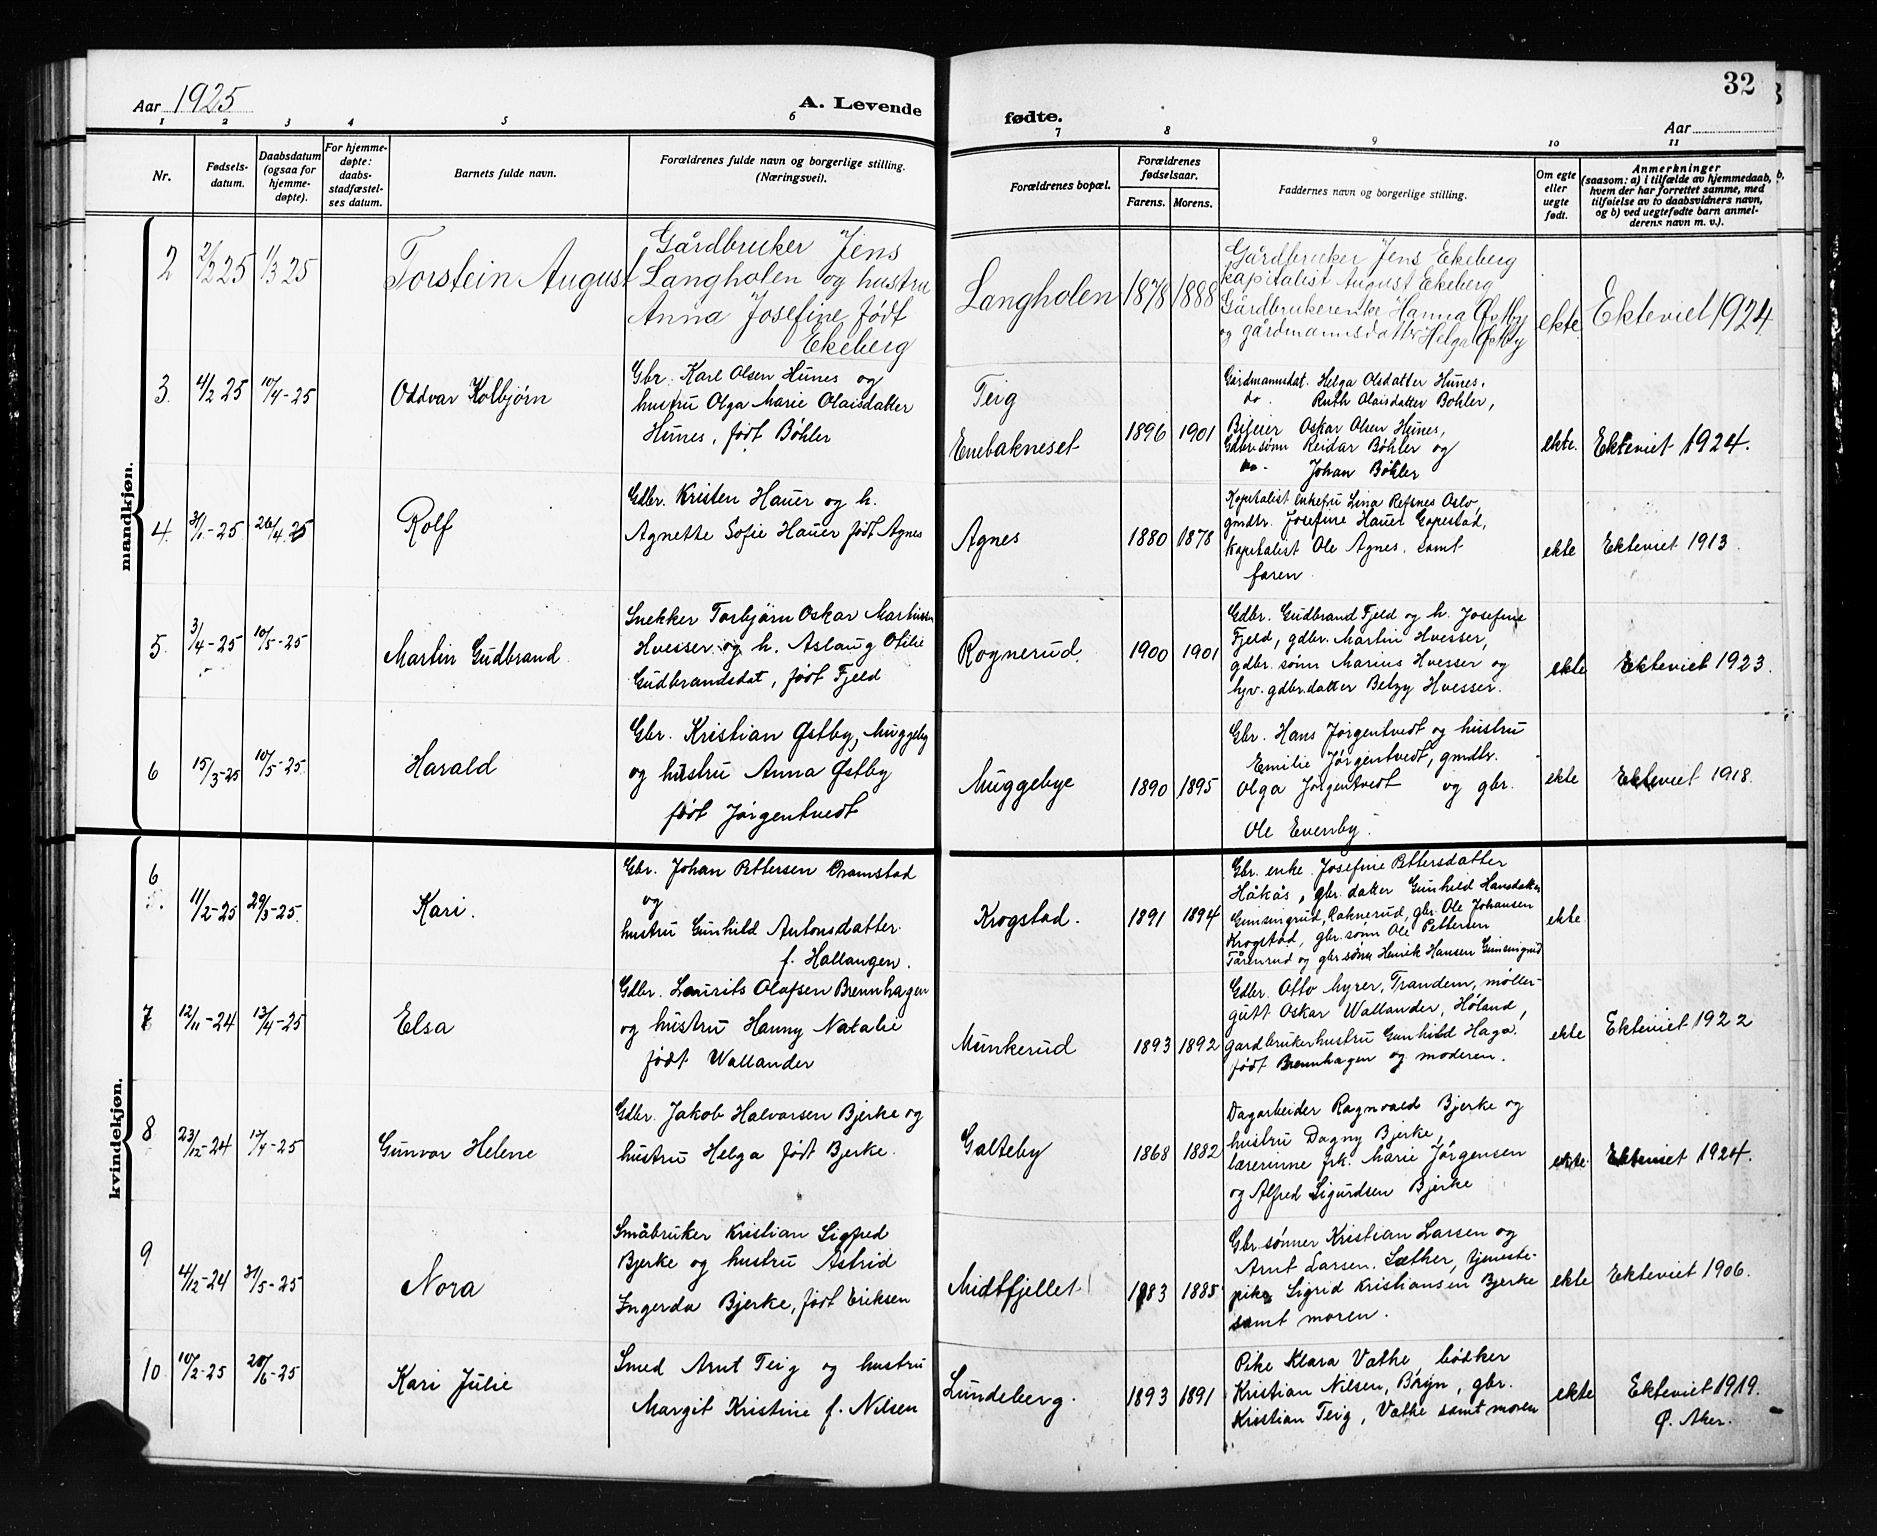 Aar 1925
A. Levende
fødte.
32
Aar
1 2 3 4 5 6 7 8 9 10 11
Nr.
Fødsels-
datum.
Daabsdatum
(ogsaa for
hjemme-
døpte).
For hjemme-
døpte:
daabs-
stadfæstel-
ses datum.
Barnets fulde navn.
Forældrenes fulde navn og borgerlige stilling.
(Næringsvei).
Forældrenes bopæl.
Forældrenes
fødselsaar.
Farens. Morens.
Faddernes navn og borgerlige stilling.
Om egte
eller
uegte
født.
Anmerkninger
(saasom: a) i tilfælde av hjemmedaab,
hvem der har forrettet samme, med
tilføielse av to daabsvidners navn,
og b) ved uegtefødte barn anmel-
derens navn m. v.).
mandkjøn.
2
2/2 25
1/3 25
Torstein August
Gårdbruker Jens
Langholen og hustru
Anna Josefine født
Ekeberg
Langholen
1878
1888
Gårdbruker Jens Ekeberg
kapitalist August Ekeberg
Gårdbrukerenke Hanna Østby
og gårdmannsdatter Helga Østby
ekte
Ekteviet 1924
3.
4/2 25
10/4-25
Oddvar Kolbjørn
Gbr. Karl Olsen Hunes og
hustru Olga Marie Olaisdatter
Hunes, født Bøhler
Teig
Enebakneset
1896
1901
Gårdmannsdat. Helga Olsdatter Hunes,
do. Ruth Olaisdatter Bøhler,
Bileier Oskar Olsen Hunes,
Gdbr.sønn Reidar Bøhler og
do- Johan Bøhler
ekte.
Ekteviet 1924.
4.
31/1-25
26/4.25
Rolf
Gdbr. Kristen Hauer og h.
Agnette Sofie Hauer født Agnes
Agnes
1880
1878
Kapitalist enkefru Lina Refsnes Oslo,
gmdtr. Josefine Hauer Gopestad,
Kapitalist Ole Agnes. samt
faren.
ekte
Ekteviet 1913.
5.
3/4-25
10/5-25
Martin Gudbrand.
Snekker Torbjørn Oskar Martinsen
Hvesser og h. Aslaug Otilie
Gudbrandsdat, født Fjeld
Rognerud.
1900
1901
Gdbr. Gudbrand Fjeld og h. Josefine
Fjeld, gdbr. Martin Hvesser,
gdbr. sønn Marius Hvesser og
hjv. gdbr.datter Betzy Hvesser.
ekte
Ekteviet 1923.
6
15/3-25
10/5-25.
Harald
Gbr. Kristian Østby, Muggeby
og hustru Anna Østby
født Jørgentvedt
Muggebye
1890
1895
Gbr. Hans Jørgentvedt og hustru
Emilie Jørgentvedt, gmdtr.
Olga Jørgentvedt og gbr.
Ole Evenby.
ekte
Ekteviet 1918.
kvindekjøn.
6
11/2-25
29/3-25.
Kari.
Gbr. Johan Pettersen Dramstad
og
hustru Gunhild Antonsdatter
f. Hallangen.
Krogstad.
1891
1894
Gbr. enke Josefine Pettersdatter
Håkås, gbr. datter Gunhild Hansdatter
Gunsingrud, Raknerud, gbr. Ole Johansen
Krogstad, gbr. sønn Ole Pettersen
Tårenrud og gbr.sønn Henrik Hansen Gunsingrud
ekte
7
12/11-24
13/4-25
Elsa
Gdbr. Laurits Olafsen Brennhagen
og hustru Hanny Natalie
født Wallander
Munkerud
1893
1892
Gdbr. Otto Myrer, Trandem, møller-
gutt Oskar Wallander, Høland,
gardbrukerhustru Gunhild Haga.
født Brennhagen og moderen.
ekte
Ekteviet 1922
8
23/12-24
17/4-25
Gunvor Helene
Gdbr. Jakob Halvorsen Bjerke og
hustru Helga født Bjerke.
Galteby
1868
1882
Dagarbeider Ragnvald Bjerke og
hustru Dagny Bjerke,
lærerinne frk. Marie Jørgensen
og Alfred Sigurdsen Bjerke
ekte
Ekteviet 1924.
9
4/12-24
31/5-25
Nora
Småbruker Kristian Sigfred
Bjerke og hustru Astrid
Ingerda Bjerke, født Eriksen
Midtfjellet
1883
1885
Gbr sønner Kristian Larsen og
Arnt Larsen. Sæther, tjeneste-
pike Sigrid Kristiansen Bjerke
samt moren.
ekte
Ekteviet 1906.
10
10/2-25
28/6-25
Kari Julie
Smed Arnt Teig og hustru
Margit Kristine f. Nilsen
Lundeberg.
1893
1891
Pike Klara Vathe, bødker
Kristian Nilsen, Bøyn, gbr.
Kristian Teig, Vathe samt moren
ekte
Ekteviet 1919.
Ø. Aker.